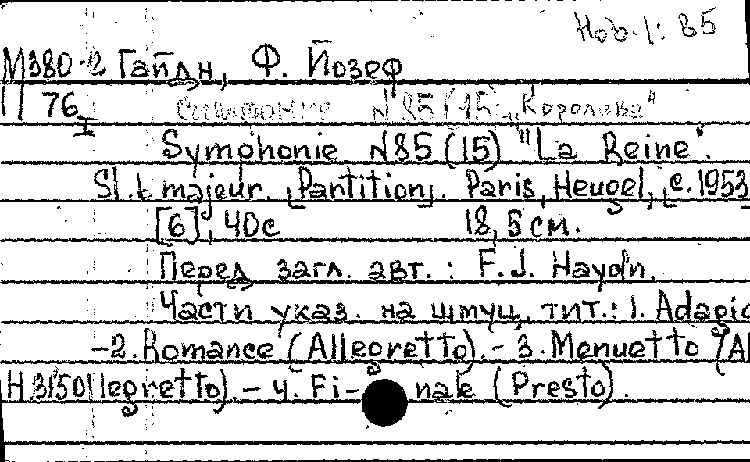 Нов. 1: 85
М380-2 Гайдн, Ф. Йозеф
76 I Симфония N85 (15) "Королева"
Symphonie N85 (15) "La Reine".
Si.b majeur. [Partition]. Paris, Heugel, [c. 1953
[6], 40с 18,5 см.
Перед загл. авт.: F.J. Haydn.
Части указ. на шмуц. тит.: 1. Adagio
-2. Romance (Allegretto). - 3. Menuetto (Al
Н3150 llegretto). - 4. Fi- nale (Presto).